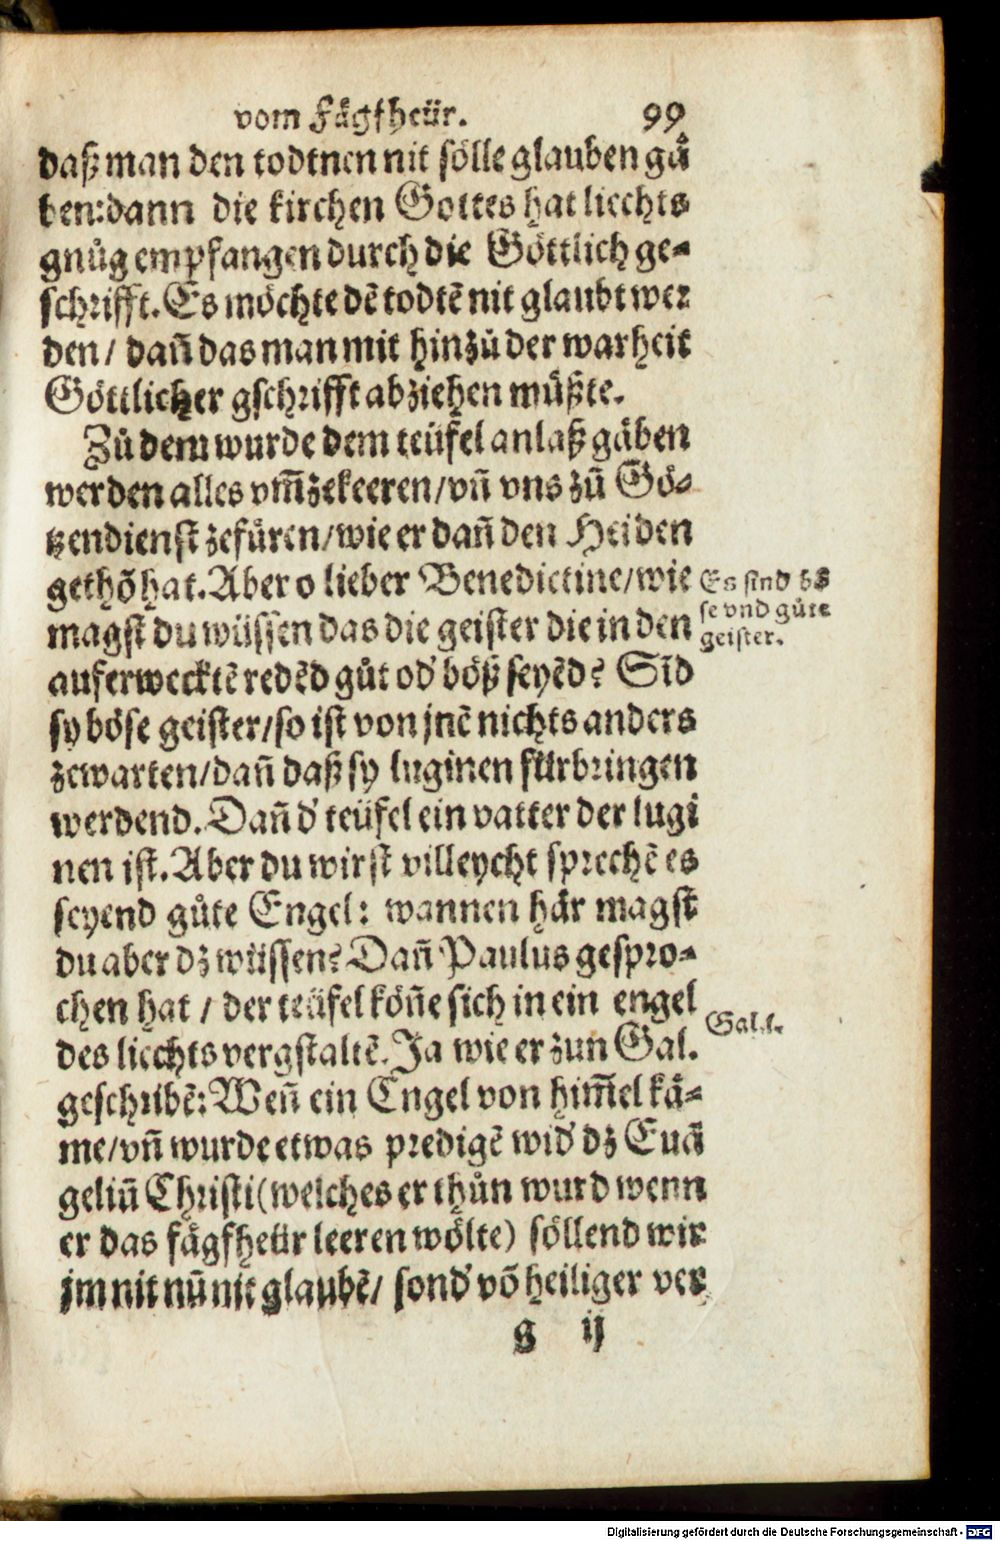 vom Fägfheür. 99
daß man den todtnen nit sölle glauben gä
ben: dann die kirchen Gottes hat liechts
gnůg empfangen durch die Göttlich ge-
schrifft. Es möchte dē todtē nit glaubt wer
den / dañ das man mit hinzů der warheit
Göttlicher gschrifft abziehen müßte.
Zů dem wurde dem teüfel anlaß gäben
werden alles vm̃zekeeren / vñ vns zů Gö-
tzendienst zefüren / wie er dañ den Heiden
gethõ hat. Aber o lieber Benedictine / wie
magst du wüssen das die geister die in den
auferwecktē redēd gůt od' böß seyēd? Sīd
sy böse geister / so ist von jnē nichts anders
zewarten / dañ daß sy luginen fürbringen
werdend. Dañ d' teüfel ein vatter der lugi
nen ist. Aber du wirst villeycht sprechē es
seyend gůte Engel: wannen här magst
du aber dz wüssen? Dañ Paulus gespro-
chen hat / der teüfel köñe sich in ein engel
des liechts vergstaltē. Ja wie er zun Gal.
geschribē: Weñ ein Engel von him̃el kä-
me / vñ wurde etwas predigē wid' dz Euā
geliū Christi (welches er thůn wurd wenn
er das fägfheür leeren wölte) söllend wir
jm nit nū nit glaubē / sond' võ heiliger ver
g ij
Es sind bö
se vnd gůte
geister.
Gal. 1.
Digitalisierung gefördert durch die Deutsche Forschungsgemeinschaft - DFG